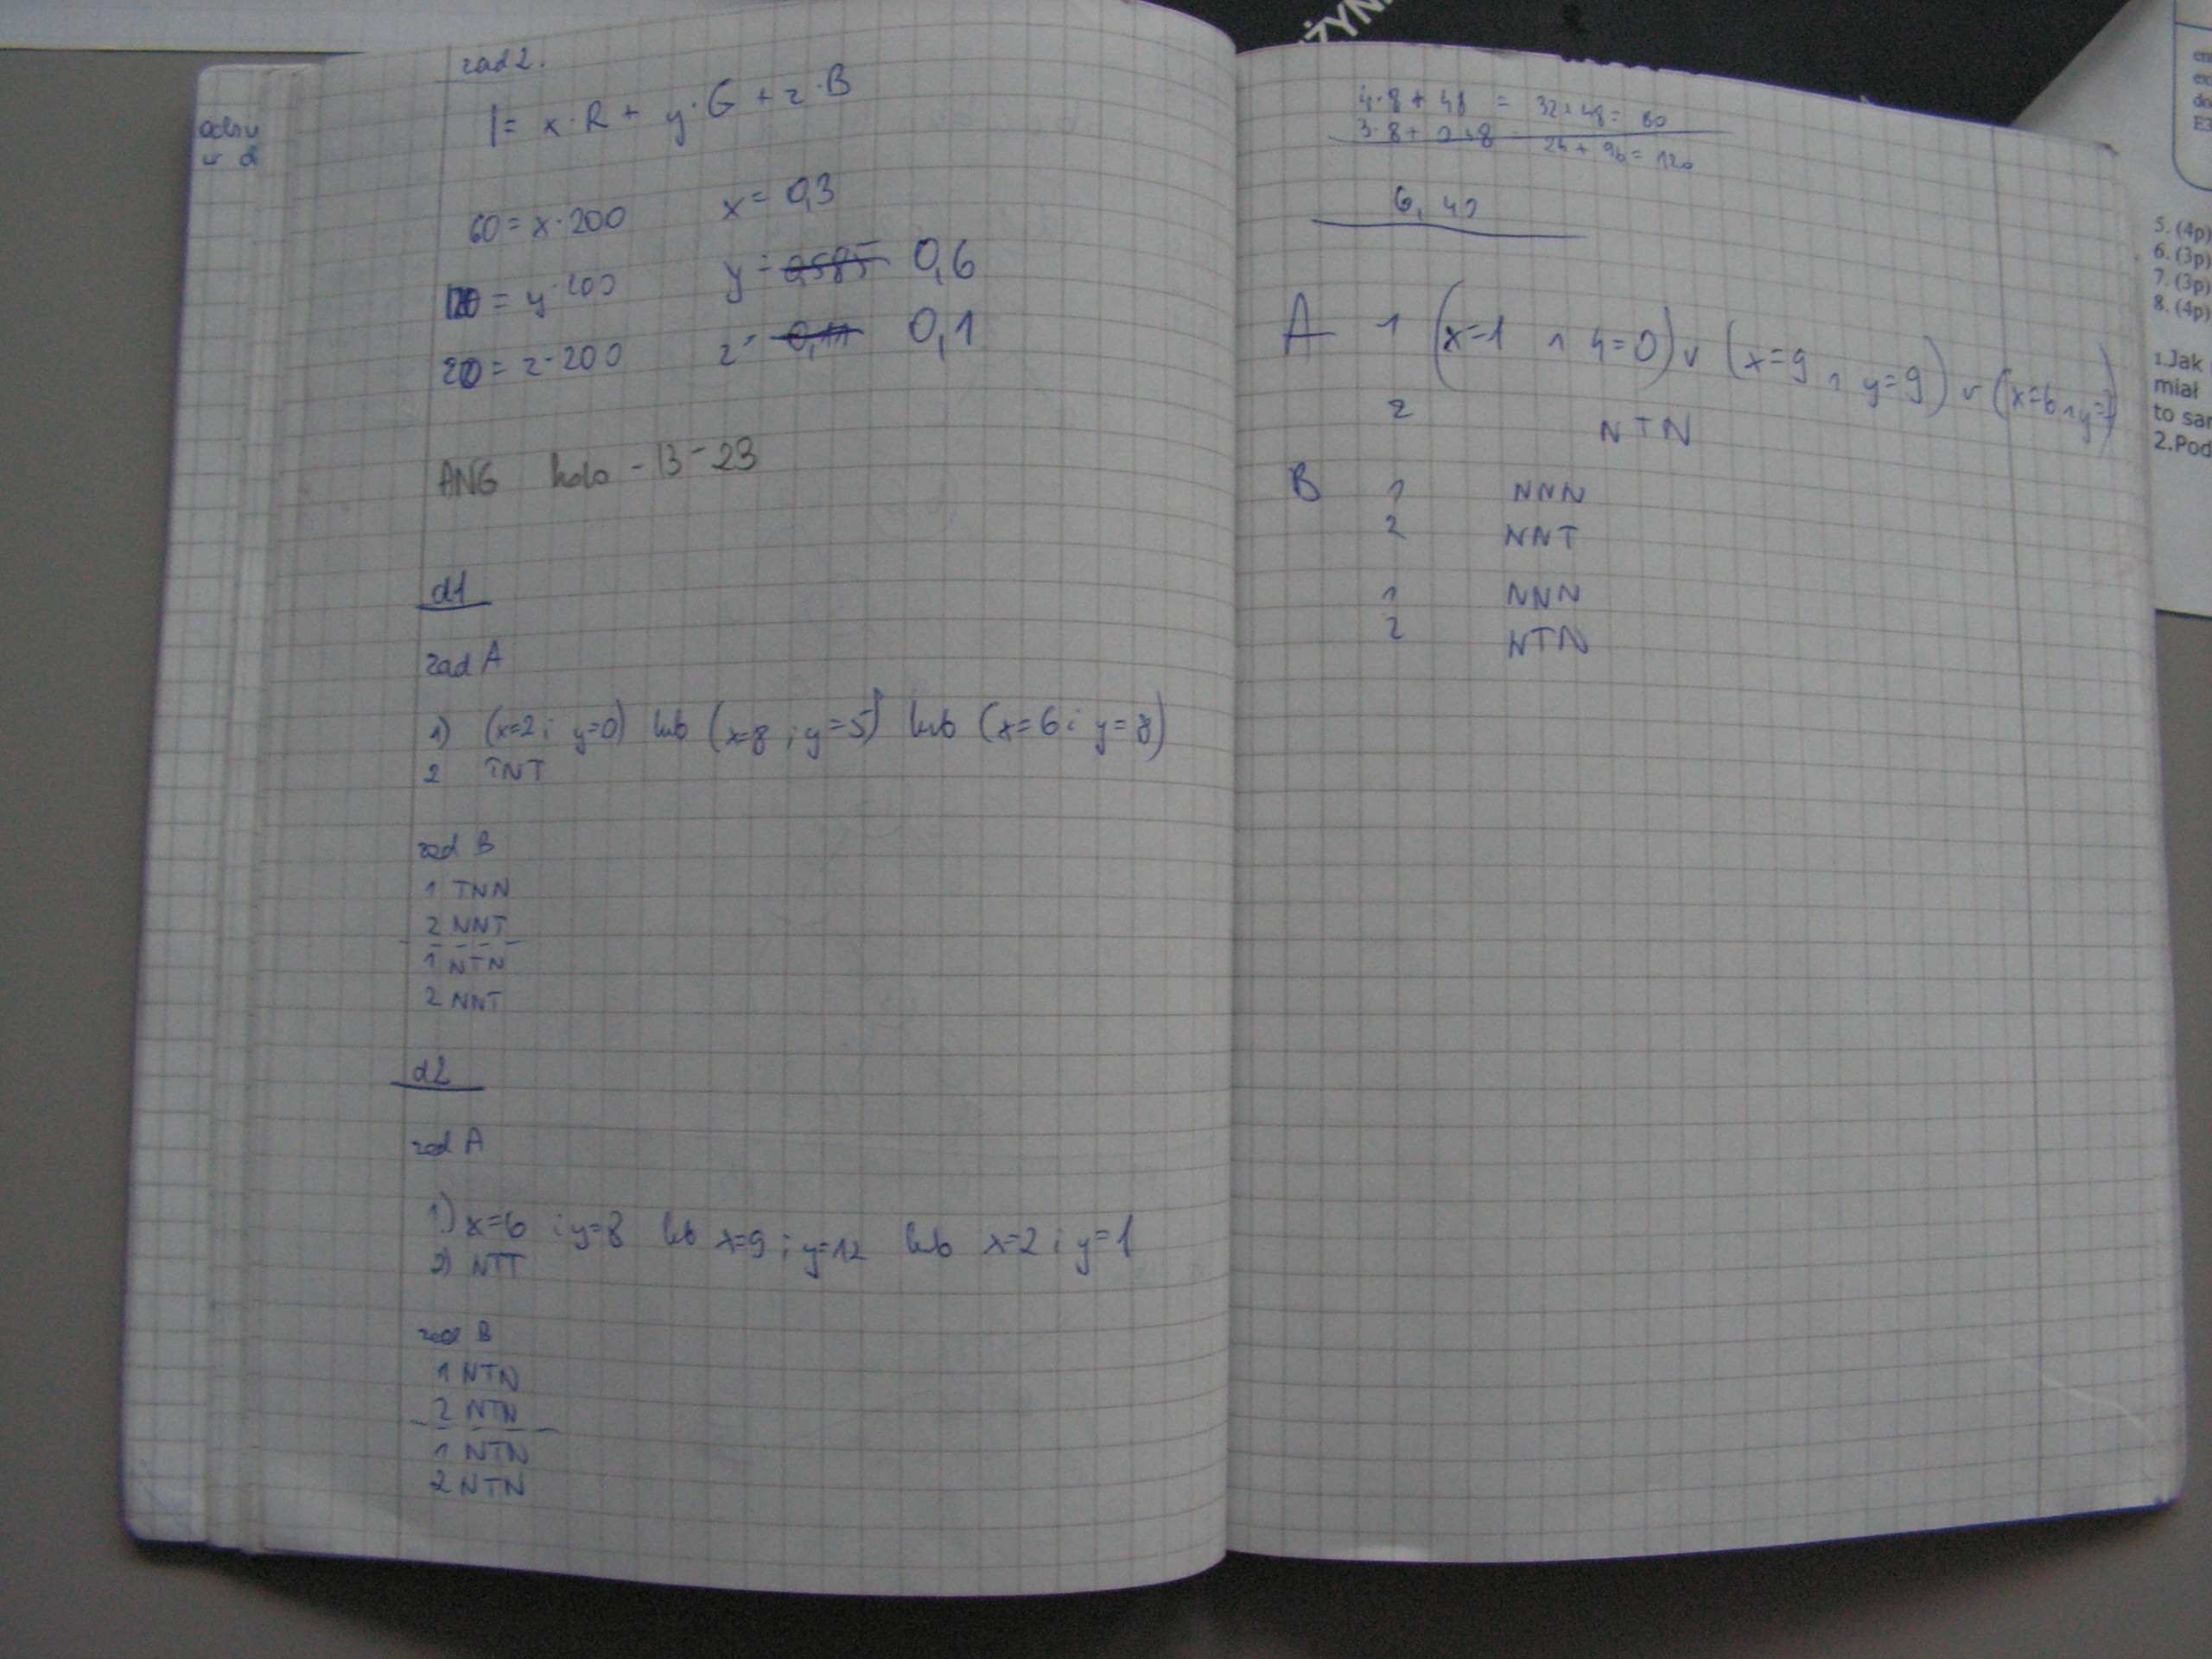 zad 2.
I = x · R + y · G + z · B
60 = x · 200 x = 0,3
120 = y · 200 y = 0,6
20 = z · 200 z = 0,1
ANG kolo - 13 - 23
d1
zad A
1) (x=2 i y=0) lub (x=8 i y=5) lub (x=6 i y=8)
2 TNT
zad B
1 TNN
2 NNT
1 NTN
2 NNT
d2
zad A
1) x=6 i y=8 lub x=9 i y=12 lub x=2 i y=1
2) NTT
zad B
1 NTN
2 NTN
1 NTN
2 NTN
4·8 + 48 = 32+48= 80
3·8 + 2·48 24 + 96 = 120
6, 42
A 1 (x=1 ∧ y=0) ∨ (x=9 ∧ y=9) ∨ (x=6 ∧ y=
2 NTN
B 1 NNN
2 NNT
1 NNN
2 NTN
ŻYN
5. (4p)
6. (3p)
7. (3p)
8. (4p)
1.Jak
miał
to sa
2.Pod